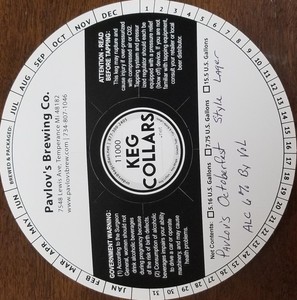 Pavlov's Brewing Co.
7548 Lewis Ave, Temperance MI 48182
www.pavlovsbrew.com | 734-807-1046
BREWED & PACKAGED:
JAN
FEB
MAR
APR
MAY
JUN
JUL
AUG
SEP
OCT
NOV
DEC
ATTENTION - READ
BEFORE TAPPING:
This keg may rupture and
cause injury if over-pressurized
with compressed air or CO2.
Tapping system and pressure
land regulator should each be
equipped with a pressure relief
(blow off) valve. If you are not
familiar with this equipment,
consult your retailer or local
beer distributor.
11000
KEG
COLLARS
GOVERNMENT WARNING:
(1) According to the Surgeon
General, women should not
drink alcoholic beverages
during pregnancy because
of the risk of birth defects.
(2) Consumption of alcoholic
beverages impairs your ability
to drive a car or operate
machinery, and may cause
health problems.
Net Contents: 5.16 U.S. Gallons 7.75 U.S. Gallons 15.5 U.S. Gallons
Pavlov's Octoberfest Style Lager
ALC 6% By Vol